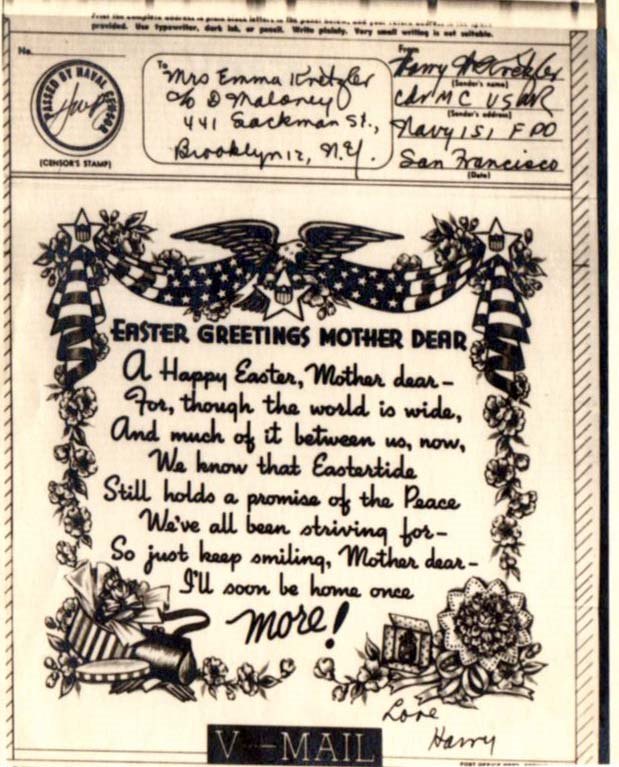 Print the complete address in plain block letters in the panel below, and your return address in the space
provided. Use typewriter, dark ink, or pencil. Write plainly. Very small writing is not suitable.
No.
PASSED BY NAVAL CENSOR
(CENSOR'S STAMP)
To
Mrs Emma Kretzler
c/o D Maloney
441 Sackman St.,
Brooklyn 12, N.Y.
From
Harry Kretzler
(Sender's name)
Cdr MC USNR
(Sender's address)
Navy 151 FPO
San Francisco
(Date)
EASTER GREETINGS MOTHER DEAR
A Happy Easter, Mother dear–
For, though the world is wide,
And much of it between us, now,
We know that Eastertide
Still holds a promise of the Peace
We've all been striving for–
So just keep smiling, Mother dear–
I'll soon be home once
more!
Love
Harry
V···—MAIL